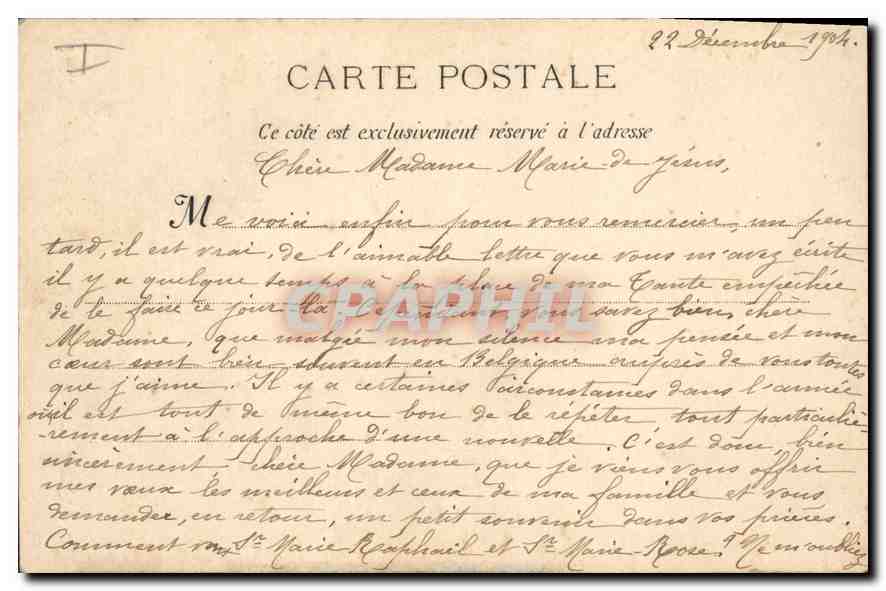 I
22 Décembre 1904.
CARTE POSTALE
Ce côté est exclusivement réservé à l'adresse
Chère Madame Marie-de Jésus,
Me voici enfin pour vous remercier, un peu
tard, il est vrai, de l'aimable lettre que vous m'avez écrite
il y a quelque temps à la place de ma Tante empêchée
de le faire ce jour là. Cependant vous savez bien, chère
Madame, que malgré mon silence ma pensée et mon
cœur sont bien souvent en Belgique auprès de vous toutes
que j'aime. Il y a certaines circonstances dans l'année
où il est tout de même bon de le répéter, tout particuliè-
-rement à l'approche d'une nouvelle. C'est donc, bien
sincèrement chère Madame, que je viens vous offrir
mes vœux les meilleurs et ceux de ma famille et vous
demander, en retour, un petit souvenir dans vos prières.
Comment vont Sr Marie Raphaël et Sr Marie-Rose? Ne m'oubliez
CPAPHIL